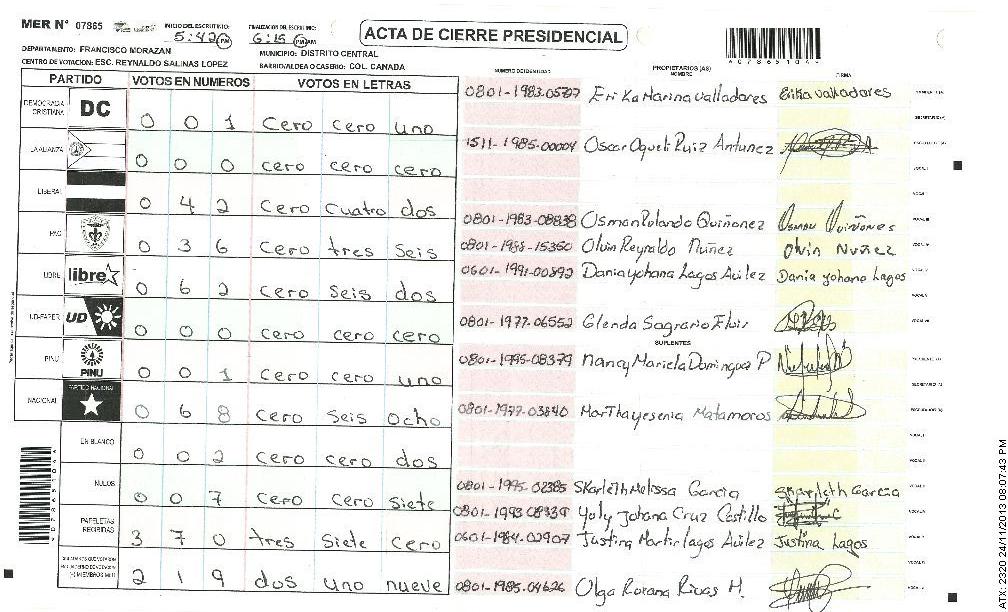 MER N° 07865 INICIO DEL ESCRUTINIO: 5:42 PM FINALIZACIÓN DEL ESCRUTINIO: 6:15 PM AM ACTA DE CIERRE PRESIDENCIAL
DEPARTAMENTO: FRANCISCO MORAZAN MUNICIPIO: DISTRITO CENTRAL
CENTRO DE VOTACION: ESC. REYNALDO SALINAS LOPEZ BARRIO/ALDEA O CASERIO: COL. CANADA
PARTIDO VOTOS EN NUMEROS VOTOS EN LETRAS NUMERO DE IDENTIDAD PROPIETARIOS (AS) NOMBRE FIRMA
DEMOCRACIA CRISTIANA DC 0 0 1 Cero cero uno
LA ALIANZA 0 0 0 cero cero cero
LIBERAL 0 4 2 Cero Cuatro dos
PAC 0 3 6 Cero tres Seis
LIBRE libre 0 6 2 Cero Seis dos
UD-FAPER UD 0 0 0 Cero cero cero
PINU PINU 0 0 1 Cero Cero uno
NACIONAL PARTIDO NACIONAL 0 6 8 Cero Seis Ocho
EN BLANCO 0 0 2 Cero Cero dos
NULOS 0 0 7 Cero Cero Siete
PAPELETAS RECIBIDAS 3 7 0 tres Siete Cero
2 1 9 dos uno nueve
0801-1983-05707 Erika Marina Valladares Erika Valladares
1511-1985-00004 Oscar Oqueli Ruiz Antunez
0801-1983-08838 Osman Rolando Quiñonez Osman Quiñones
0801-1988-15350 Olvin Reynaldo Nuñez Olvin Nuñez
0601-1991-00892 Dania Yohana Lagos Avilez Dania Yohana Lagos
0801-1977-06552 Glenda Sagrario Elvir
SUPLENTES
0801-1995-08379 Nancy Mariela Dominguez P
0801-1977-03840 Martha yesenia Matamoros
0801-1995-02385 Skarleth Melissa Garcia Skarleth Garcia
0801-1993-08339 Yoly Johana Cruz Castillo
0601-1984-02907 Justina Martir Lagos Avilez Justina Lagos
0801-1985-04626 Olga Roxana Rivas M.
ATX 2320 24/11/2013 08:07:43 PM